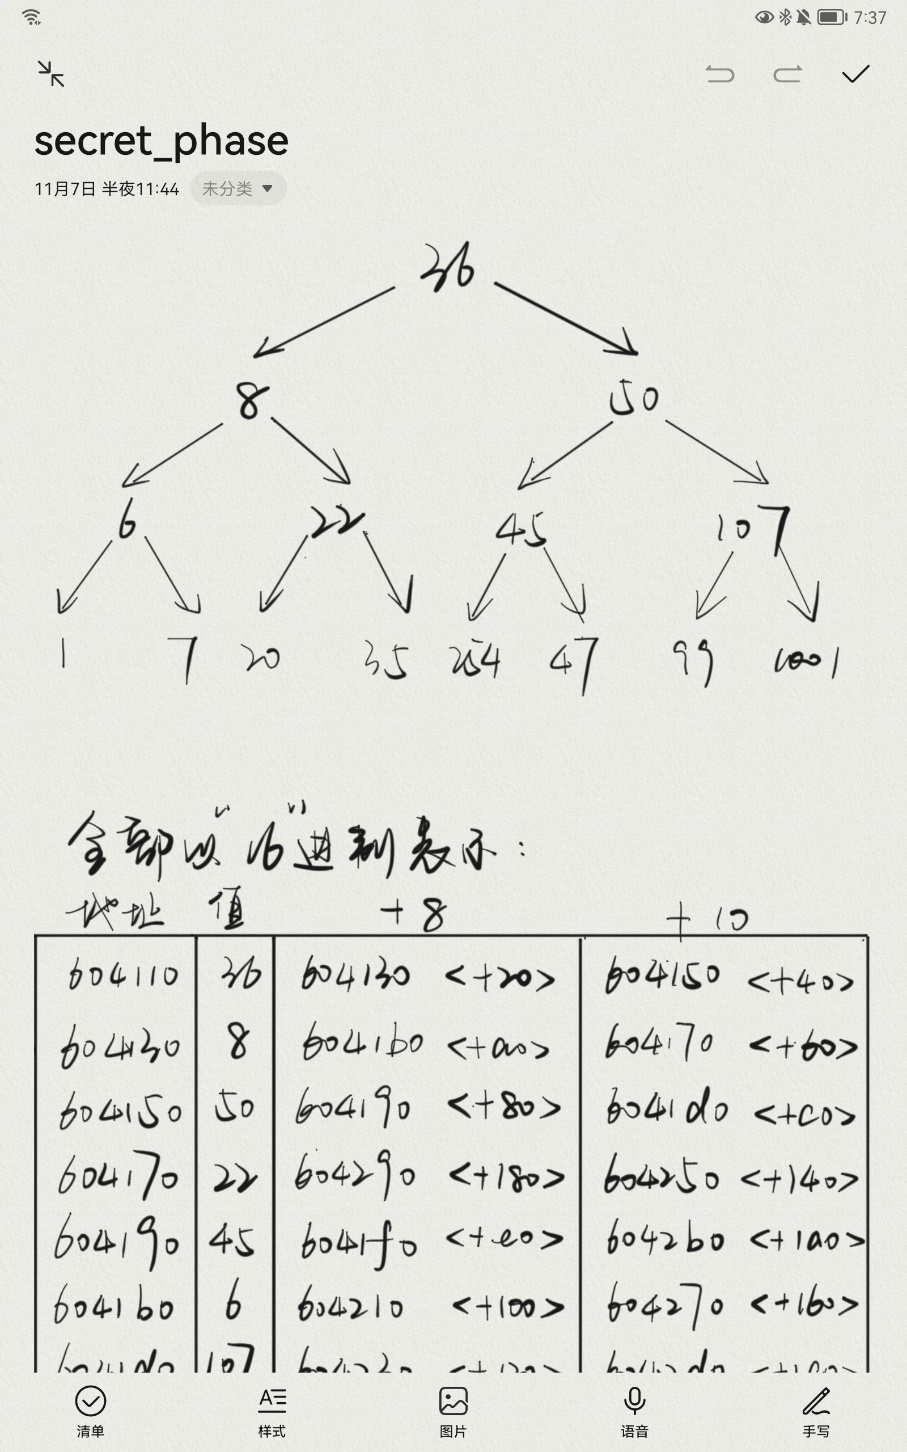 7:37
secret_phase
11月7日 半夜11:44 未分类
36
8 50
6 22 45 107
1 7 20 35 254 47 99 1001
全部以“16”进制表示：
地址 值 +8 +10
604110 36 604130 <+20> 604150 <+40>
604130 8 6041b0 <+a0> 604170 <+60>
604150 50 604190 <+80> 6041d0 <+c0>
604170 22 604290 <+180> 604250 <+140>
604190 45 6041f0 <+e0> 6042b0 <+1a0>
6041b0 6 604210 <+100> 604270 <+160>
6041d0 107
清单 样式 图片 语音 手写